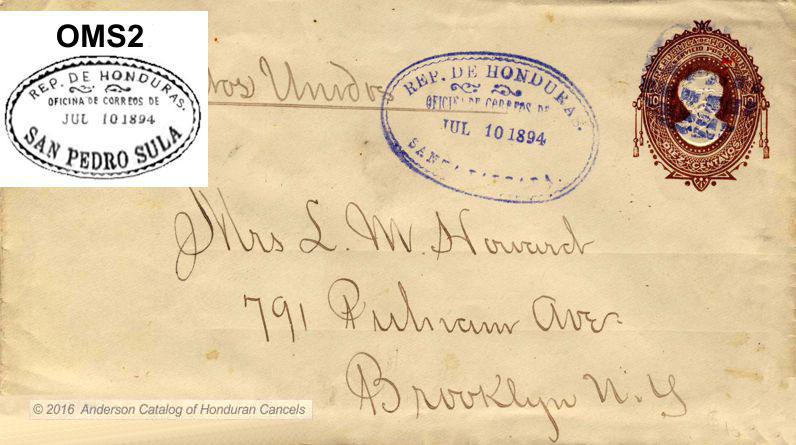 OMS2
REP. DE HONDURAS.
OFICINA DE CORREOS DE
JUL 10 1894
SAN PEDRO SULA
Unidos
REP. DE HONDURAS.
OFICINA DE CORREOS DE
JUL 10 1894
SANTA
10
DIEZ CENTAVOS
Mrs L. M. Howard
791 Putnam Ave.
Brooklyn N. Y
© 2016 Anderson Catalog of Honduran Cancels